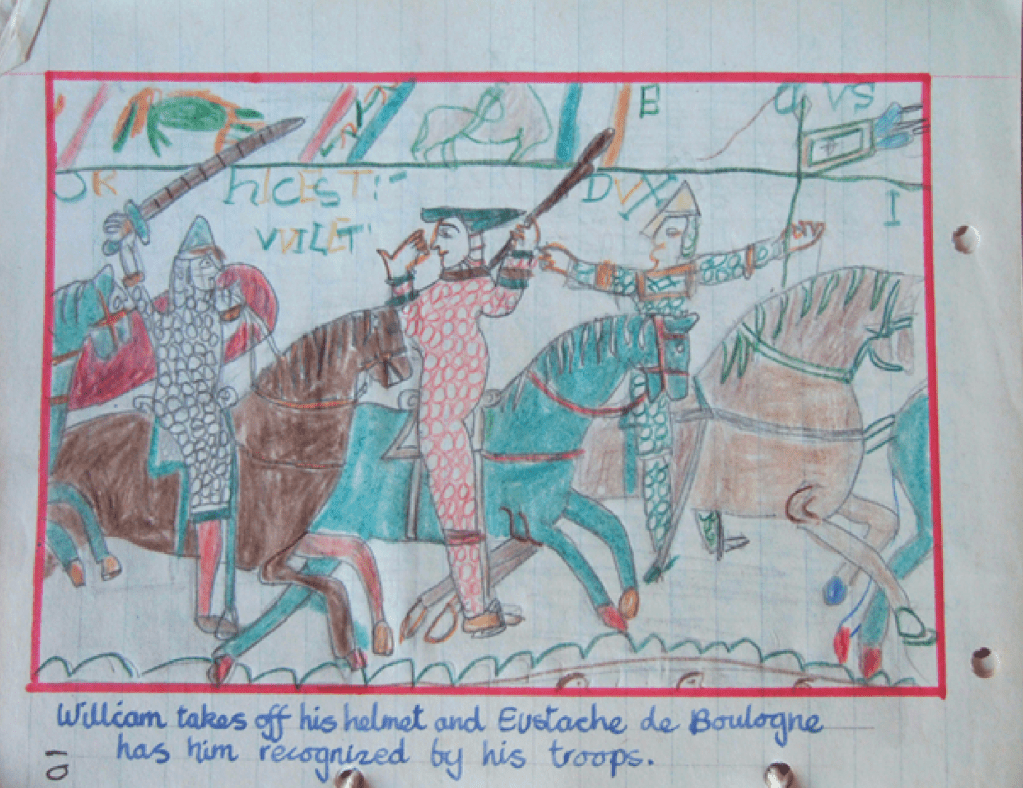 E
VS
hICEST:-
DVX
VVILET
I
William takes off his helmet and Eustache de Boulogne
has him recognized by his troops.
10